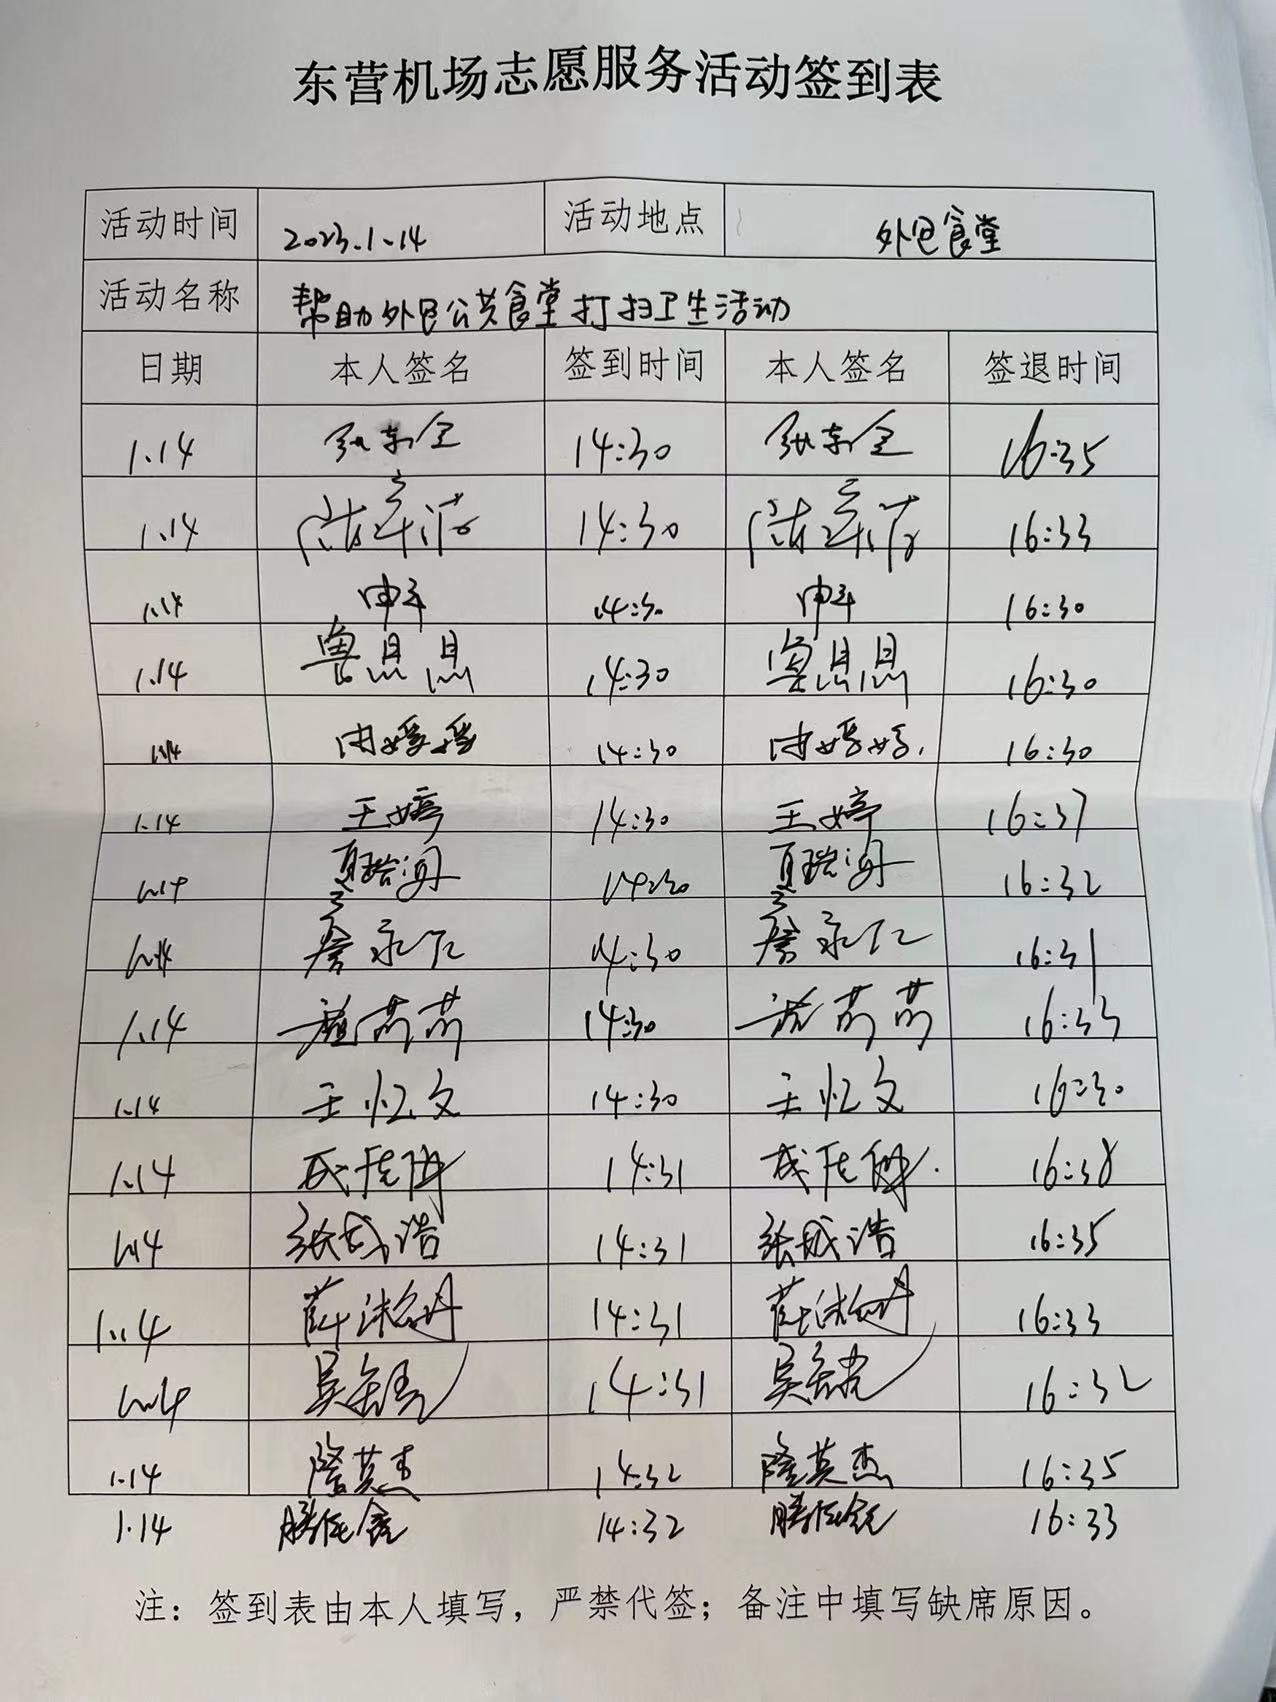 东营机场志愿服务活动签到表
活动时间 2023.1.14 活动地点 外包食堂
活动名称 帮助外包公共食堂打扫卫生活动
日期 本人签名 签到时间 本人签名 签退时间
1.14 张东全 14:30 张东全 16:35
1.14 14:30 16:33
1.14 14:30 16:30
1.14 鲁思思 14:30 鲁思思 16:30
1.14 14:30 16:30
1.14 王婷 14:30 王婷 16:37
1.14 14:30 16:32
1.14 詹永仁 14:30 詹永仁 16:31
1.14 14:30 16:33
1.14 王忆文 14:30 王忆文 16:30
1.14 14:31 16:38
1.14 张成浩 14:31 张成浩 16:35
1.14 14:31 16:33
1.14 14:31 16:32
1.14 隆英杰 14:32 隆英杰 16:35
1.14 14:32 16:33
注：签到表由本人填写，严禁代签；备注中填写缺席原因。